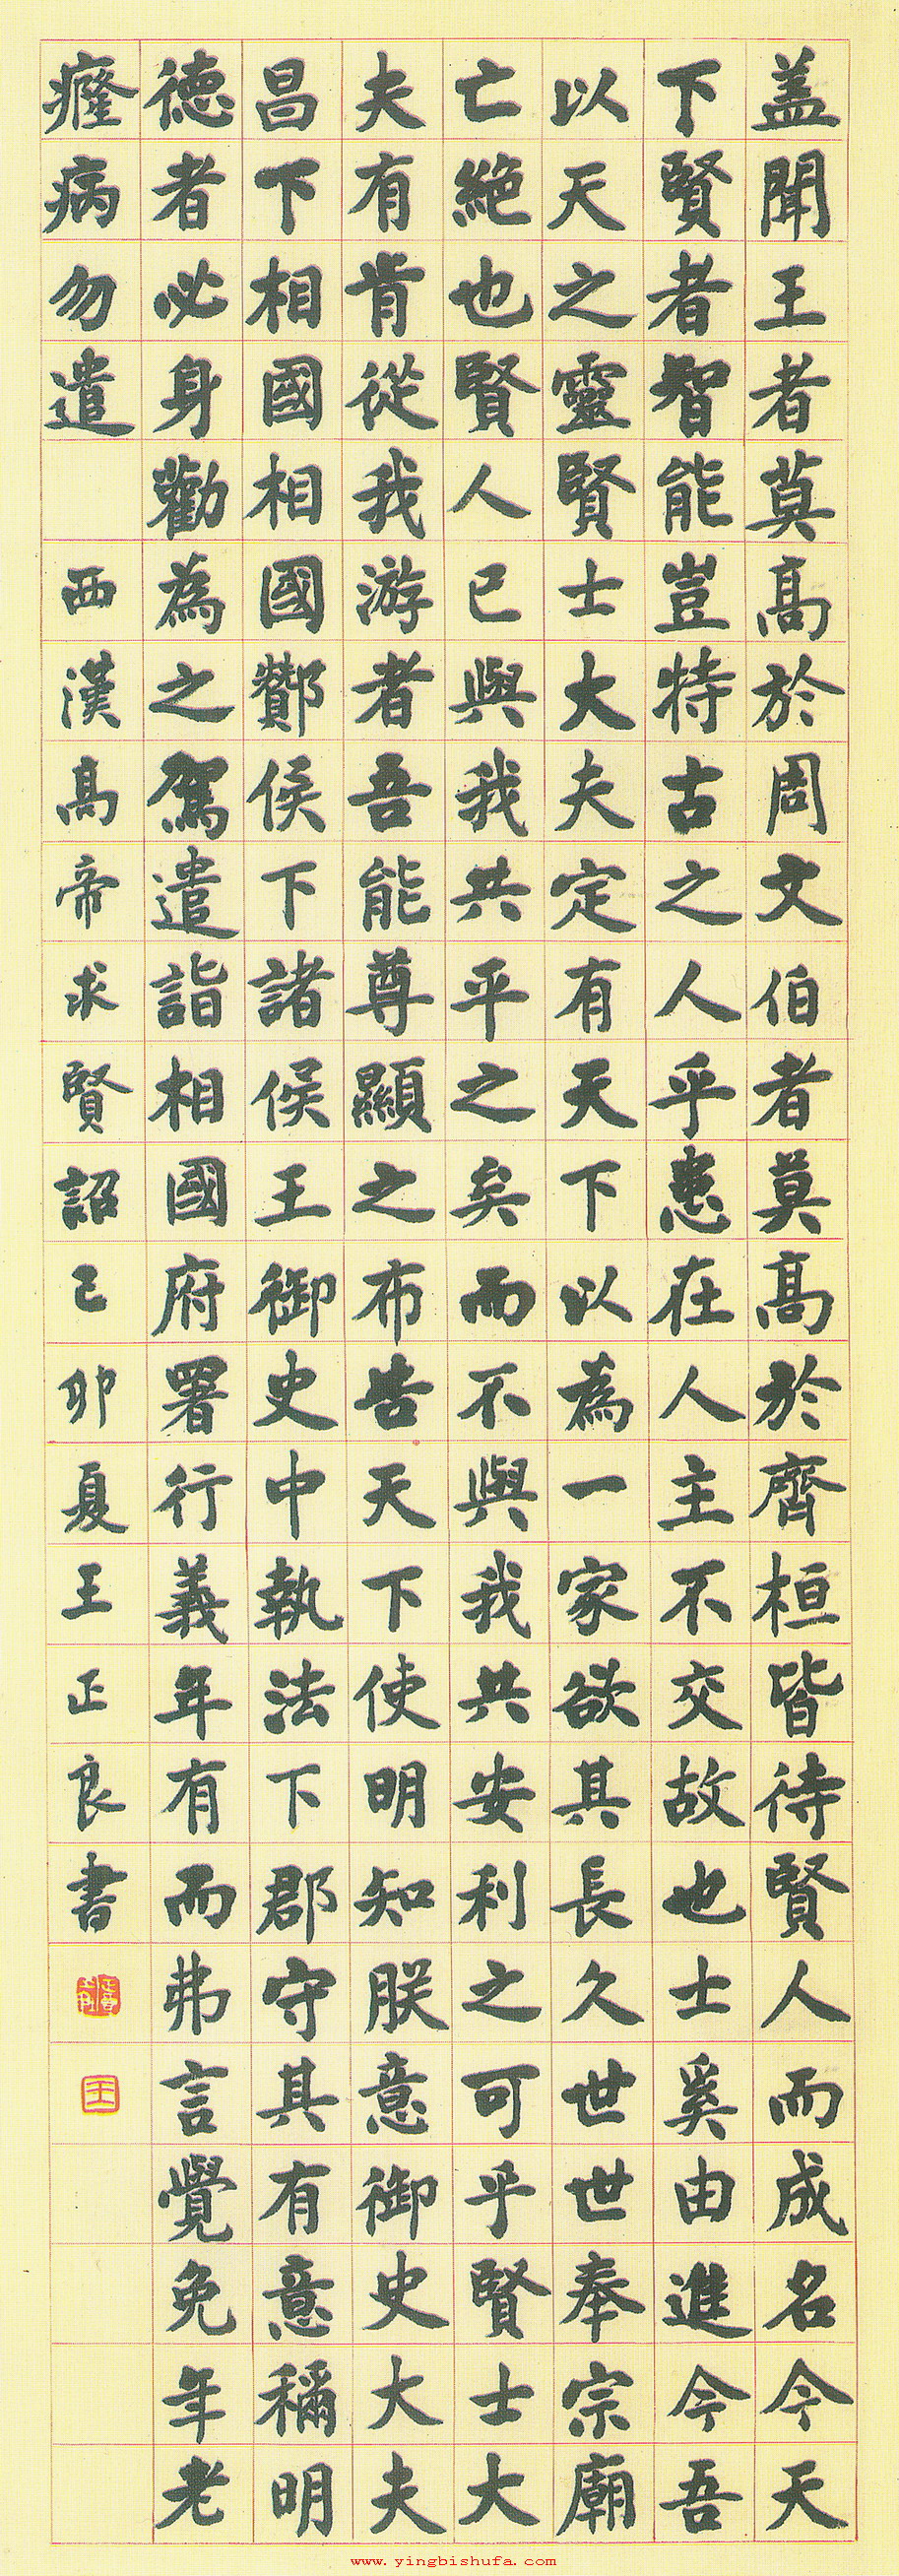 盖聞王者莫高於周文伯者莫高於齊桓皆待賢人而成名今天
下賢者智能豈特古之人乎患在人主不交故也士奚由進今吾
以天之靈賢士大夫定有天下以為一家欲其長久世世奉宗廟
亡絕也賢人已與我共平之矣而不與我共安利之可乎賢士大
夫有肯從我游者吾能尊顯之布告天下使明知朕意御史大夫
昌下相國相國酇侯下諸侯王御史中執法下郡守其有意稱明
德者必身勸為之駕遣詣相國府署行義年有而弗言覺免年老
癃病勿遣
西漢高帝求賢詔己卯夏王正良書
www.yingbishufa.com